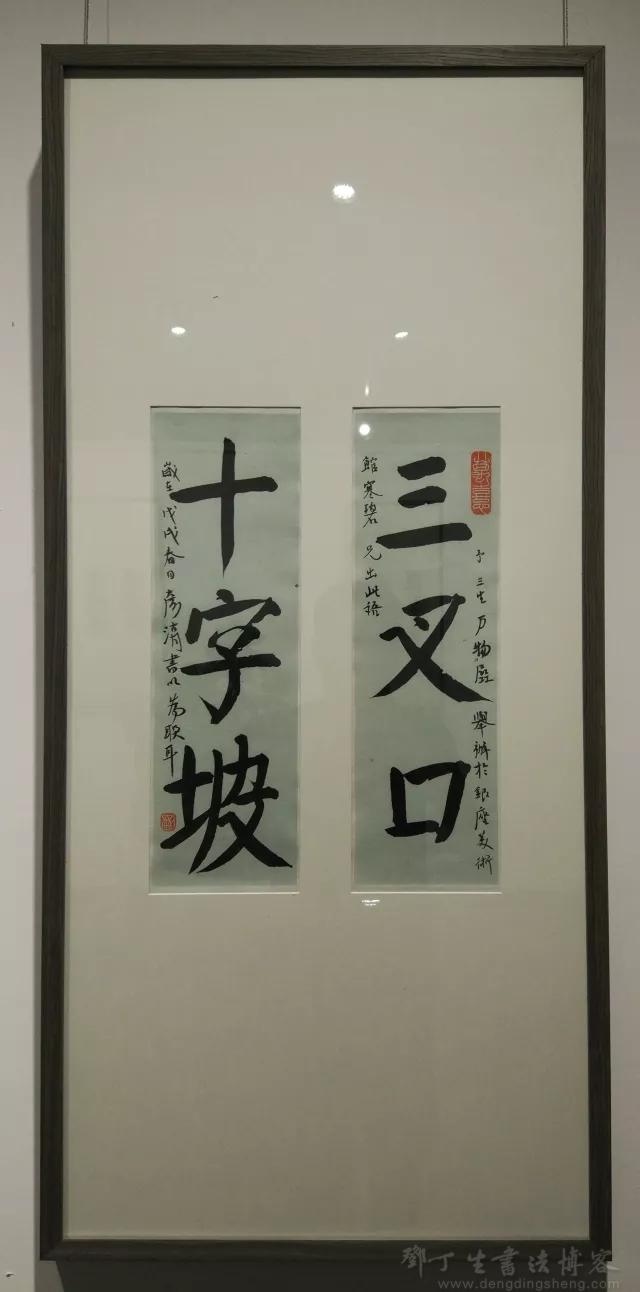 三叉口
予三生万物展舉辦於銀座美術
館寒碧兄出此語
十字坡
歲在戊戌春日彥湖書以為联耳
鄧丁生書法博客
www.dengdingsheng.com